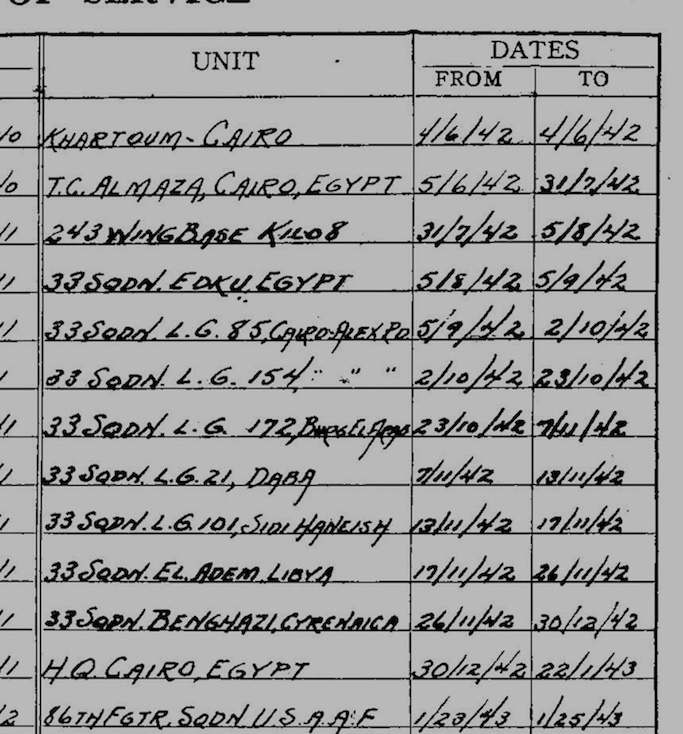 OF SERVICE
UNIT DATES
FROM TO
KHARTOUM - CAIRO 4/6/42 4/6/42
T.C. ALMAZA, CAIRO, EGYPT 5/6/42 31/7/42
243 WING BASE KILO 8 31/7/42 5/8/42
33 SQDN. EDKU, EGYPT 5/8/42 5/9/42
33 SQDN. L.G. 85, CAIRO-ALEX RD. 5/9/42 2/10/42
33 SQDN. L.G. 154 " " " 2/10/42 23/10/42
33 SQDN. L.G. 172, BURG EL ARAB 23/10/42 7/11/42
33 SQDN. L.G. 21, DABA 7/11/42 13/11/42
33 SQDN. L.G. 101, SIDI HANEISH 13/11/42 17/11/42
33 SQDN. EL ADEM, LIBYA 17/11/42 26/11/42
33 SQDN. BENGHAZI, CYRENAICA 26/11/42 30/12/42
H.Q. CAIRO, EGYPT 30/12/42 22/1/43
86TH FGTR. SQDN U.S.A.A.F 1/23/43 1/25/43